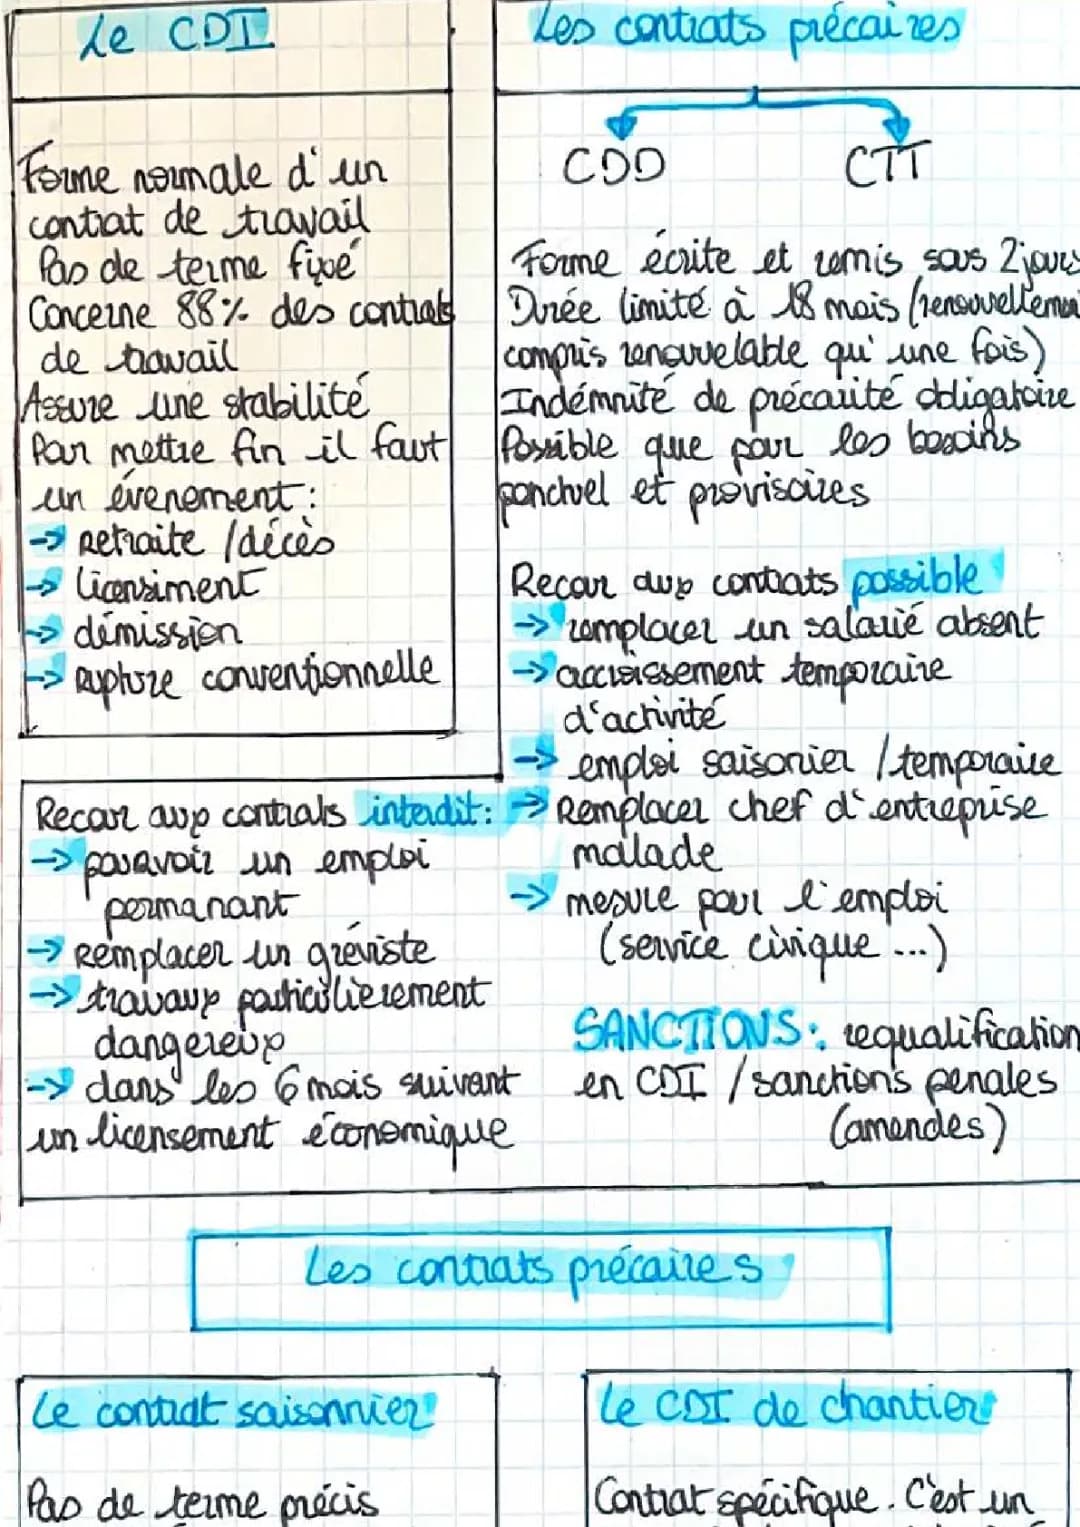 Le CDI
Forme normale d'un
contrat de travail
Pas de terme fixé
Concerne 88% des contrats
de travail
Assure une stabilité
Pour mettre fin il faut
un évenement :
→ Retraite / décès
→ licensiment
→ démission
→ Rupture conventionnelle
Les contrats précaires
CDD CTT
Forme écrite et remis sous 2 jours
Durée limité à 18 mois (renouvellemen
compris renouvelable qu'une fois)
Indémnité de précarité obligatoire
Possible que pour les besoins
ponctuel et provisoires
Recour aux contrats possible
→ remplacer un salarié absent
→ accroissement temporaire
d'activité
→ emploi saisonier / temporaire
→ Remplacer chef d'entreprise
malade
→ mesure pour l'emploi
(service civique ...)
SANCTIONS : requalification
en CDI / sanctions penales
(amendes)
Recour aux contrats interdit :
→ pouvoir un emploi
permanant
→ Remplacer un gréviste
→ travaux particulièrement
dangereux
→ dans les 6 mois suivant
un licensement économique
Les contrats précaires
Le contrat saisonnier
Pas de terme précis
Le CDI de chantier
Contrat spécifique. C'est un